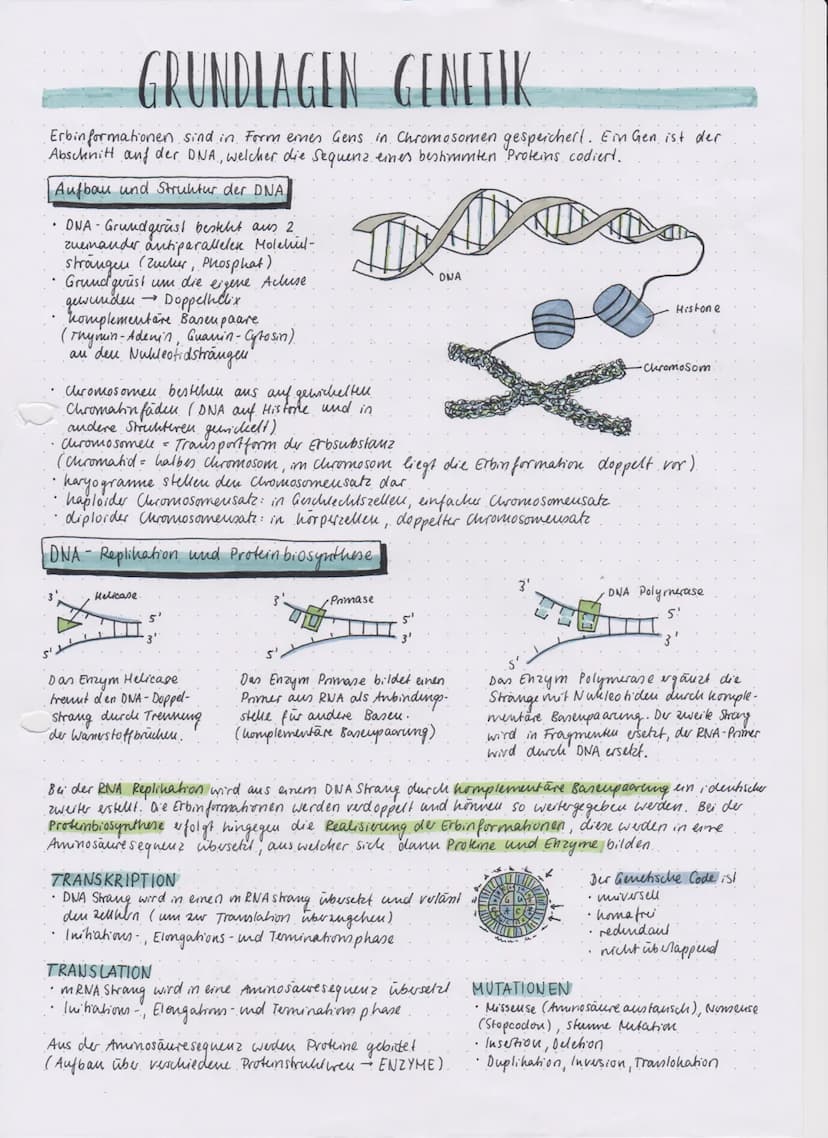 GRUNDLAGEN GENETIK
Erbinformationen sind in Form eines Gens in Chromosomen gespeichert. Ein Gen ist der
Abschnitt auf der DNA, welcher die Sequenz eines bestimmten Proteins codiert.
Aufbau und Struktur der DNA
· DNA-Grundgerüst besteht aus 2
zueinander antiparallelen Molekül-
strängen (Zucker, Phosphat)
· Grundgerüst um die eigene Achse
gewunden → Doppelhelix
· komplementäre Basenpaare
(Thymin-Adenin, Guanin-Cytosin)
an den Nukleotidsträngen
DNA
Histone
Chromosom
· Chromosomen bestehen aus aufgewickelten
Chromatinfäden (DNA auf Histone und in
andere Strukturen gewickelt)
· Chromosomele = Transportform der Erbsubstanz
(Chromatid = halbes Chromosom, im Chromosom liegt die Erbinformation doppelt vor)
· Karyogramme stellen den Chromosomensatz dar
· haploider Chromosomensatz: in Geschlechtszellen, einfacher Chromosomensatz
· diploider Chromosomensatz: in Körperzellen, doppelter Chromosomensatz
DNA-Replikation und Proteinbiosynthese
3' Helicase
5'
3'
5'
Das Enzym Helicase
trennt den DNA-Doppel-
strang durch Trennung
der Wasserstoffbrücken.
3' Primase
5'
3'
5'
Das Enzym Primase bildet einen
Primer aus RNA als Anbindungs-
stelle für andere Basen.
(komplementäre Basenpaarung)
3' DNA Polymerase
5'
3'
5'
Das Enzym Polymerase ergänzt die
Stränge mit Nukleotiden durch komple-
mentäre Basenpaarung. Der zweite Strang
wird in Fragmenten ersetzt, der RNA-Primer
wird durch DNA ersetzt.
Bei der RNA Replikation wird aus einem DNA Strang durch komplementäre Basenpaarung ein identischer
zweiter erstellt. Die Erbinformationen werden verdoppelt und können so weitergegeben werden. Bei der
Proteinbiosynthese erfolgt hingegen die Realisierung der Erbinformationen, diese werden in eine
Aminosäuresequenz übersetzt, aus welcher sich dann Proteine und Enzyme bilden.
TRANSKRIPTION
· DNA Strang wird in einen mRNA Strang übersetzt und verlässt
den Zellkern (um zur Translation überzugehen)
· Initiations-, Elongations- und Terminationsphase
Der Genetische Code ist
· universell
· kommafrei
· redundant
· nicht überlappend
TRANSLATION
· mRNA Strang wird in eine Aminosäuresequenz übersetzt
· Initiations-, Elongations- und Terminationsphase
Aus der Aminosäuresequenz werden Proteine gebildet
(Aufbau über verschiedene Proteinstrukturen → ENZYME)
MUTATIONEN
· Missense (Aminosäureaustausch), Nonsense
(Stopcodon), stumme Mutation
· Insertion, Deletion
· Duplikation, Inversion, Translokation